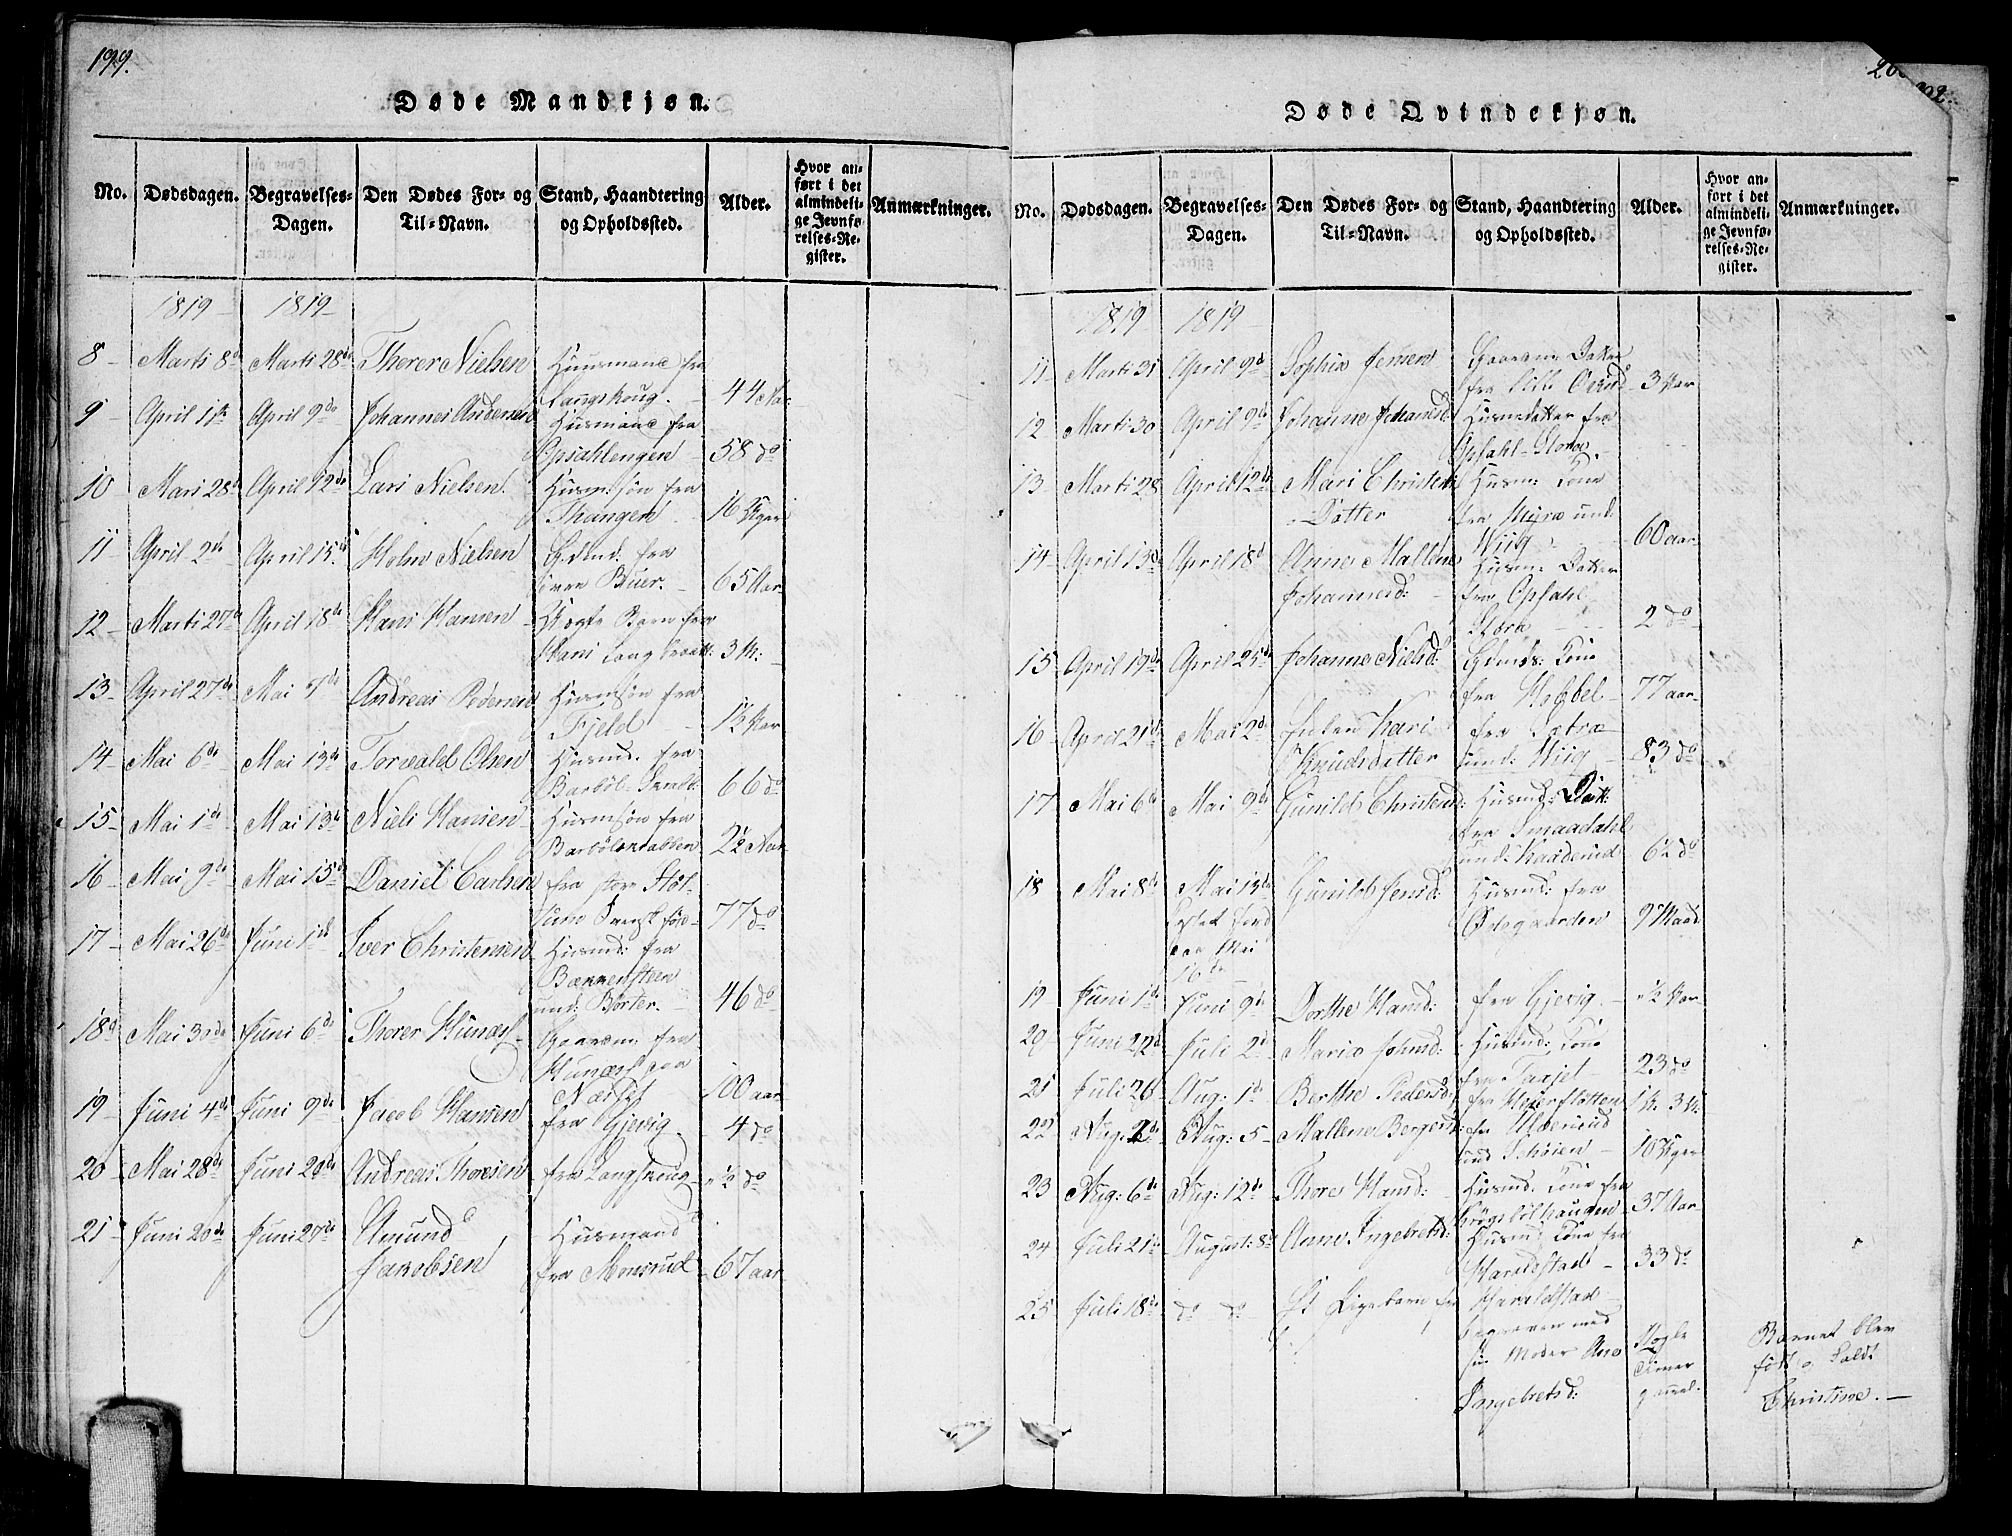 199.
Døde Mandkjøn.
No.
Dødsdagen.
Begravelses-
Dagen.
Den Dødes For- og
Til-Navn.
Stand, Haandtering
og Opholdssted.
Alder.
Hvor an-
ført i det
almindeli-
ge Jevnfø-
relses-Re-
gister.
Anmærkninger.
1819 1819
8 Marti 8d Marti 28de Thorer Nielsen Huusmand fra
Langskoug. 44 Aar
9 April 1ste April 9de Johannes Andersen Husmand fra
Opsahlengen 58 do
10 Mars 28d April 12de Lars Nielsen Husm: søn fra
Thangen 16 Uger
11 April 2de April 15de Holm Nielsen Gdmd. fra
øvre Buer. 65 Aar
12 Marti 27d April 18de Hans Hansen Barn fra
3 M:
13 April 27de Mai 7de Andreas Pedersen Husmsøn fra
Fjeld 1½ Aar
14 Mai 6de Mai 13de Torvald Olsen Husmd. fra
Barbøl 66 do
15 Mai 1de Mai 13de Niels Hansen Husmsøn fra
2½ Aar
16 Mai 9de Mai 15de Daniel Carlsen fra store
77 do
17 Mai 26de Juni 1de Iver Christensen Husmd: fra
Bænnensteen
und: Børter. 46 do
18d Mai 30de Juni 6de Thorer Hunæs Gaarm. fra
Hunæs paa
Næsset 100 aar
19 Juni 4de Juni 9de Jacob Hansen fra Gjevig. 4 do
20 Mai 28de Juni 20de Andreas Thoresen fra Langskoug ½ do
21 Juni 20de Juni 27de Amund Husmand
Jakobsen fra Monsrud 67 aar
Døde Qvindekjøn.
No.
Dødsdagen.
Begravelses-
Dagen.
Den Dødes For- og
Til-Navn.
Stand, Haandtering
og Opholdssted.
Alder.
Hvor an-
ført i det
almindeli-
ge Jevnfø-
relses-Re-
gister.
Anmærkninger.
1819 1819
11 Marti 31 April 9d Sophia Jensen Gaarmans Datter
fra Lille 3 Aar
12 Marti 30 April 9de Johanne Johansd: Husmdatter fra
Opsahl
13 Marti 28 April 12de Mari Christens Husm: Kone
Datter fra Myra und:
Wiig 60 aar
14 April 13de April 18d Anne Mallene Husm: Datter
Johannesd: fra Opsahl
2 do
15 April 19de April 25de Johanne Nielsd: Gdmds: Kone
fra Hogbel 77 aar
16 April 21d Mai 2de Kari fra Sætra
Knudsdatter und: Wiig 83 do
17 Mai 6te Mai 9de Gunild Christensd: Husmd: Datt:
fra Smaadahl
und: Kaaderud 6½ do
18 Mai 8de Mai 13de Gunild Jensd: Husmd: fra
Ødegaarden 9 Maad
Mai
16de
19 Juni 1de Juni 9de Dorthe Hansd: fra Gjevig. ½ Aar
20 Juni 22d Juli 2d Maria Johnsd: Husmd: Kone
fra Tarjet 23 do
21 Juli 26 Aug: 1d Berthe Pedersd: fra
22 Aug: 2de Aug: 5 Mallene Bergersd: fra
und Schøien 10 Uger
23 Aug: 6de Aug: 12de Thore Hansd: Husmd: Kone fra
37 Aar
24 Juli 21de August: 8d Anne Ingebretsd: Husmd: Kone fra
Haraldstad 33 do
25 Juli 18de do do Et Pigebarn fra Haraldstad
begraven med
sin Moder Ane
Ingebretsd:
Nogle
Timer
gammel
Barnet blev
født o kaldt
Christine.